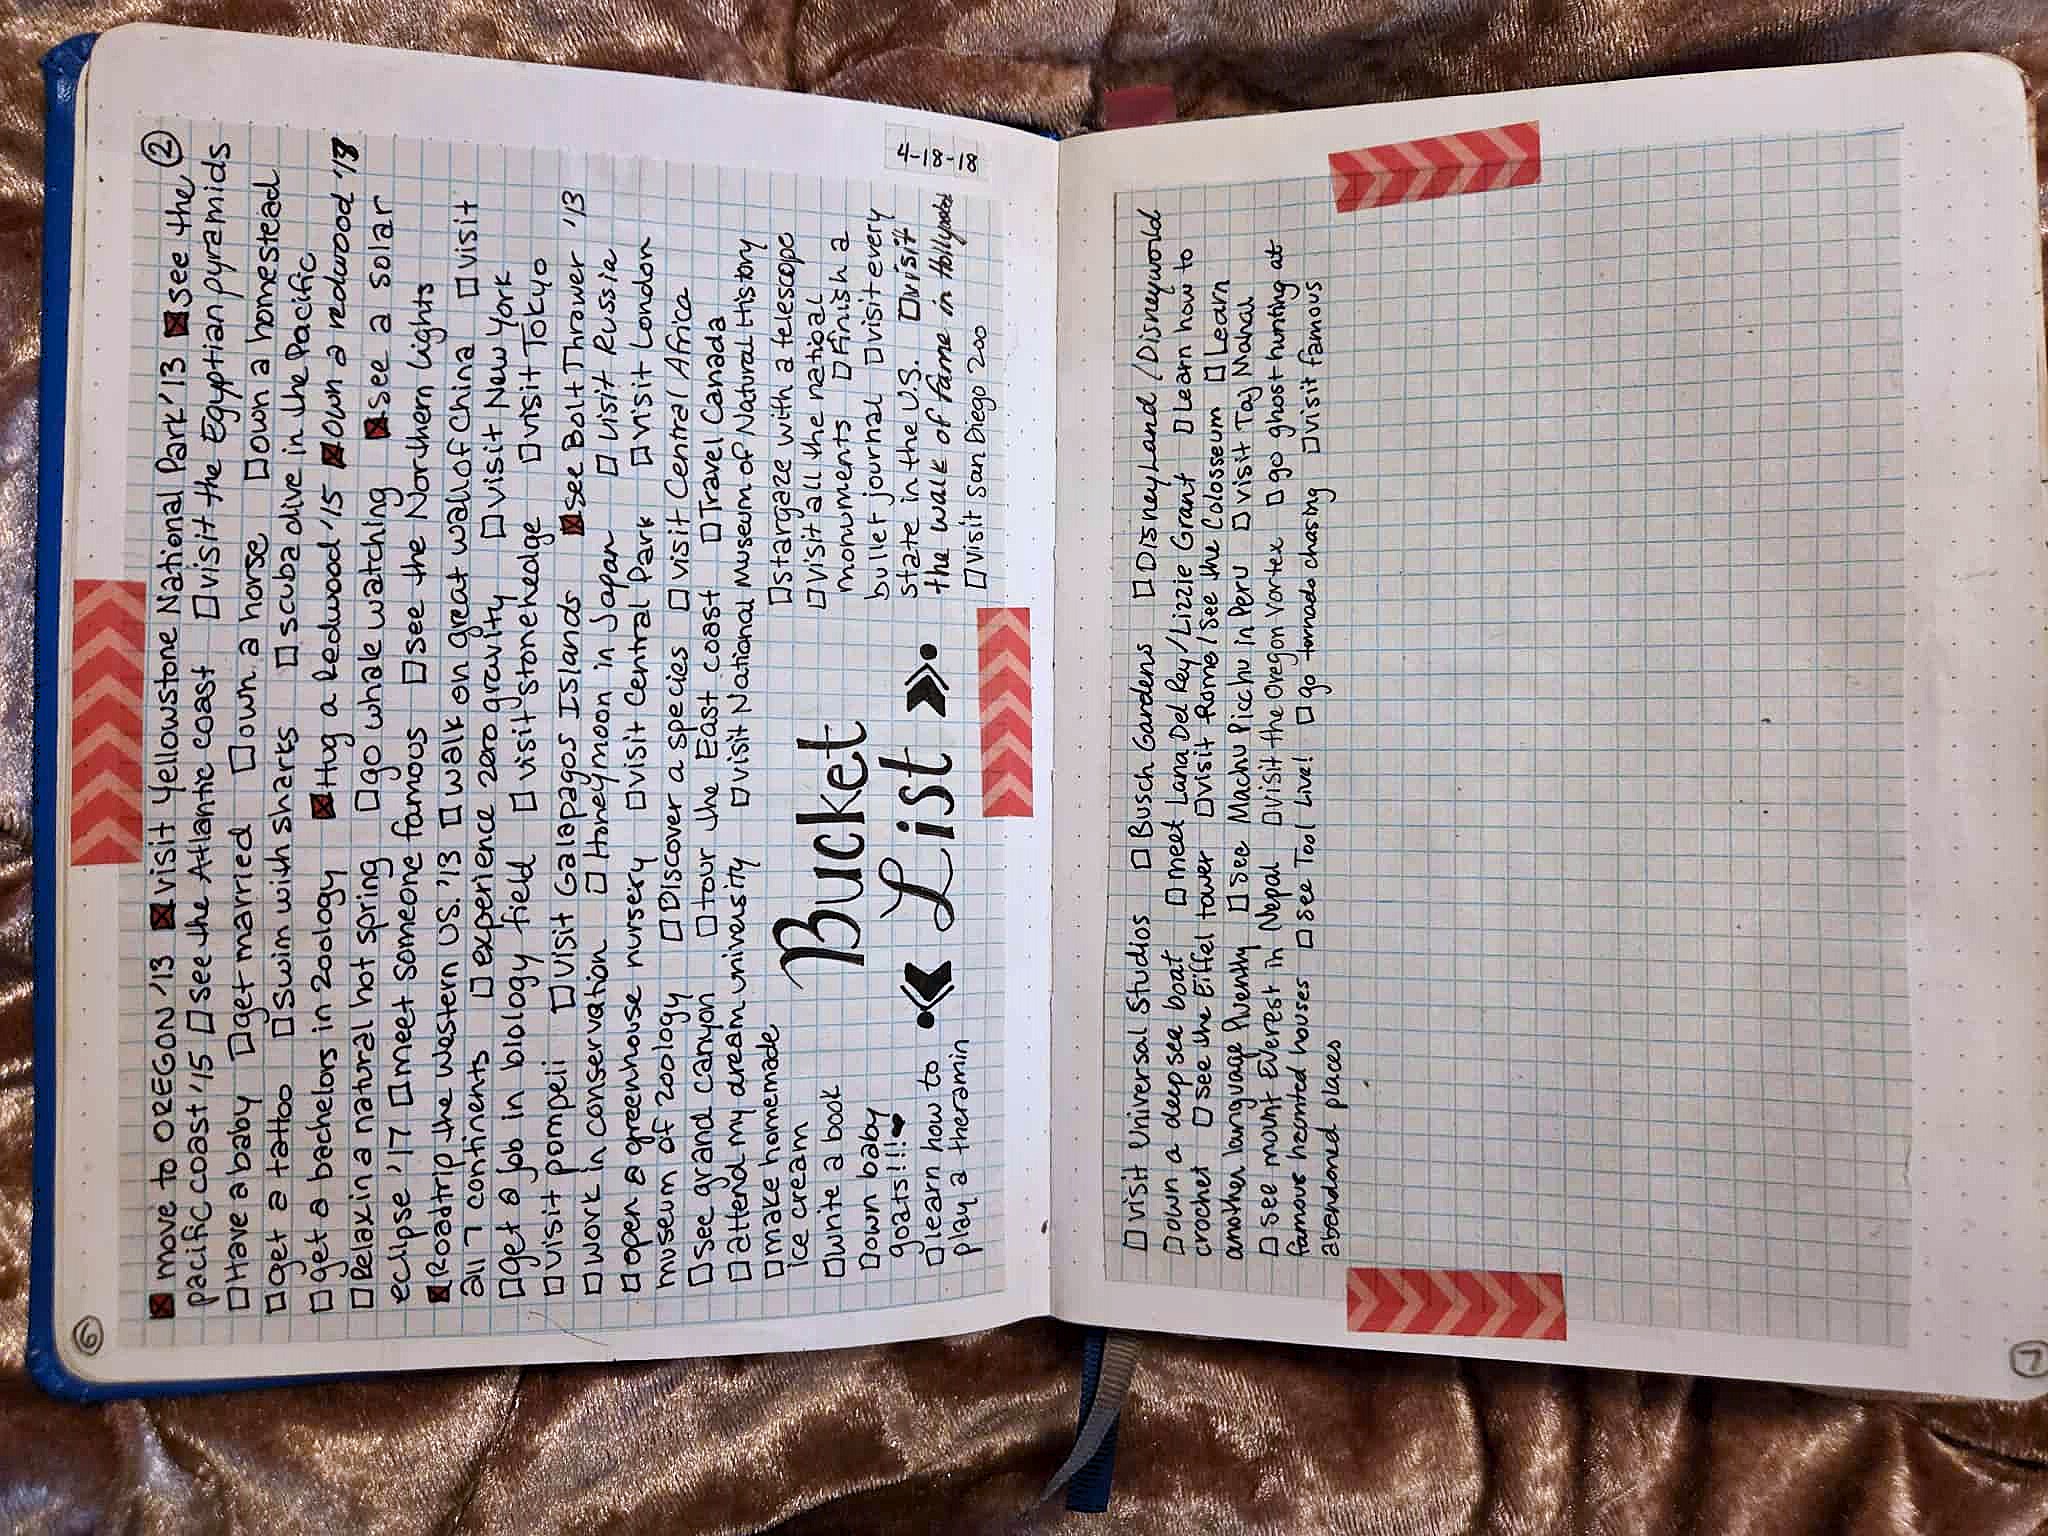 ⑥
☒ move to OREGON '13 ☒ visit Yellowstone National Park '13 ☒ see the ②
pacific coast '15 ☐ see the Atlantic coast ☐ visit the Egyptian pyramids
☐ Have a baby ☐ get married ☐ own a horse ☐ own a homestead
☐ get a tattoo ☐ swim with sharks ☐ scuba dive in the Pacific
☐ get a bachelors in zoology ☒ Hug a Redwood '15 ☒ own a redwood '18
☐ Relax in a natural hot spring ☐ go whale watching ☒ see a solar
eclipse '17 ☐ meet someone famous ☐ see the Northern Lights
☒ Roadtrip the Western US. '13 ☐ walk on great wall of China ☐ visit
all 7 continents ☐ experience zero gravity ☐ visit New York
☐ get a job in biology field ☐ visit stonehedge ☐ visit Tokyo
☐ visit pompeii ☐ visit Galapagos Islands ☒ see Bolt Thrower '13
☐ work in conservation ☐ Honeymoon in Japan ☐ visit Russia
☐ open a greenhouse nursery ☐ visit Central Park ☐ visit London
museum of zoology ☐ Discover a species ☐ visit Central Africa
☐ see grand canyon ☐ tour the East coast ☐ Travel Canada
☐ attend my dream university ☐ visit National Museum of Natural History
☐ make homemade
ice cream
☐ write a book
☐ own baby
goats!!! ♥
☐ learn how to
play a theramin
Bucket
List
☐ stargaze with a telescope
☐ visit all the natioal
monuments ☐ Finish a
bullet journal ☐ visit every
state in the U.S. ☐ visit
the walk of fame in Hollywood
☐ visit San Diego zoo
4-18-18
☐ visit Universal Studios ☐ Busch Gardens ☐ DisneyLand / Disneyworld
☐ own a deep sea boat ☐ meet Lana Del Rey / Lizzie Grant ☐ learn how to
crochet ☐ see the Eiffel tower ☐ visit Rome / See the Colosseum ☐ Learn
another language fluently ☐ see Machu Picchu in Peru ☐ visit Taj Mahal
☐ see mount Everest in Nepal ☐ visit the Oregon Vortex ☐ go ghost hunting at
famous haunted houses ☐ see Tool Live! ☐ go tornado chasing ☐ visit famous
abandoned places
7